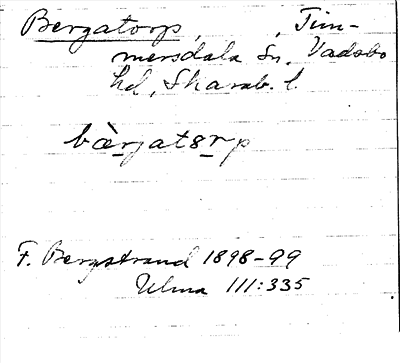 Bergatorp, , Tim-
mersdala Sn, Vadsbo
hd, Skarab. l.
bæ̀rjatɞrp
F. Bergstrand 1898-99
Ulma 111:335